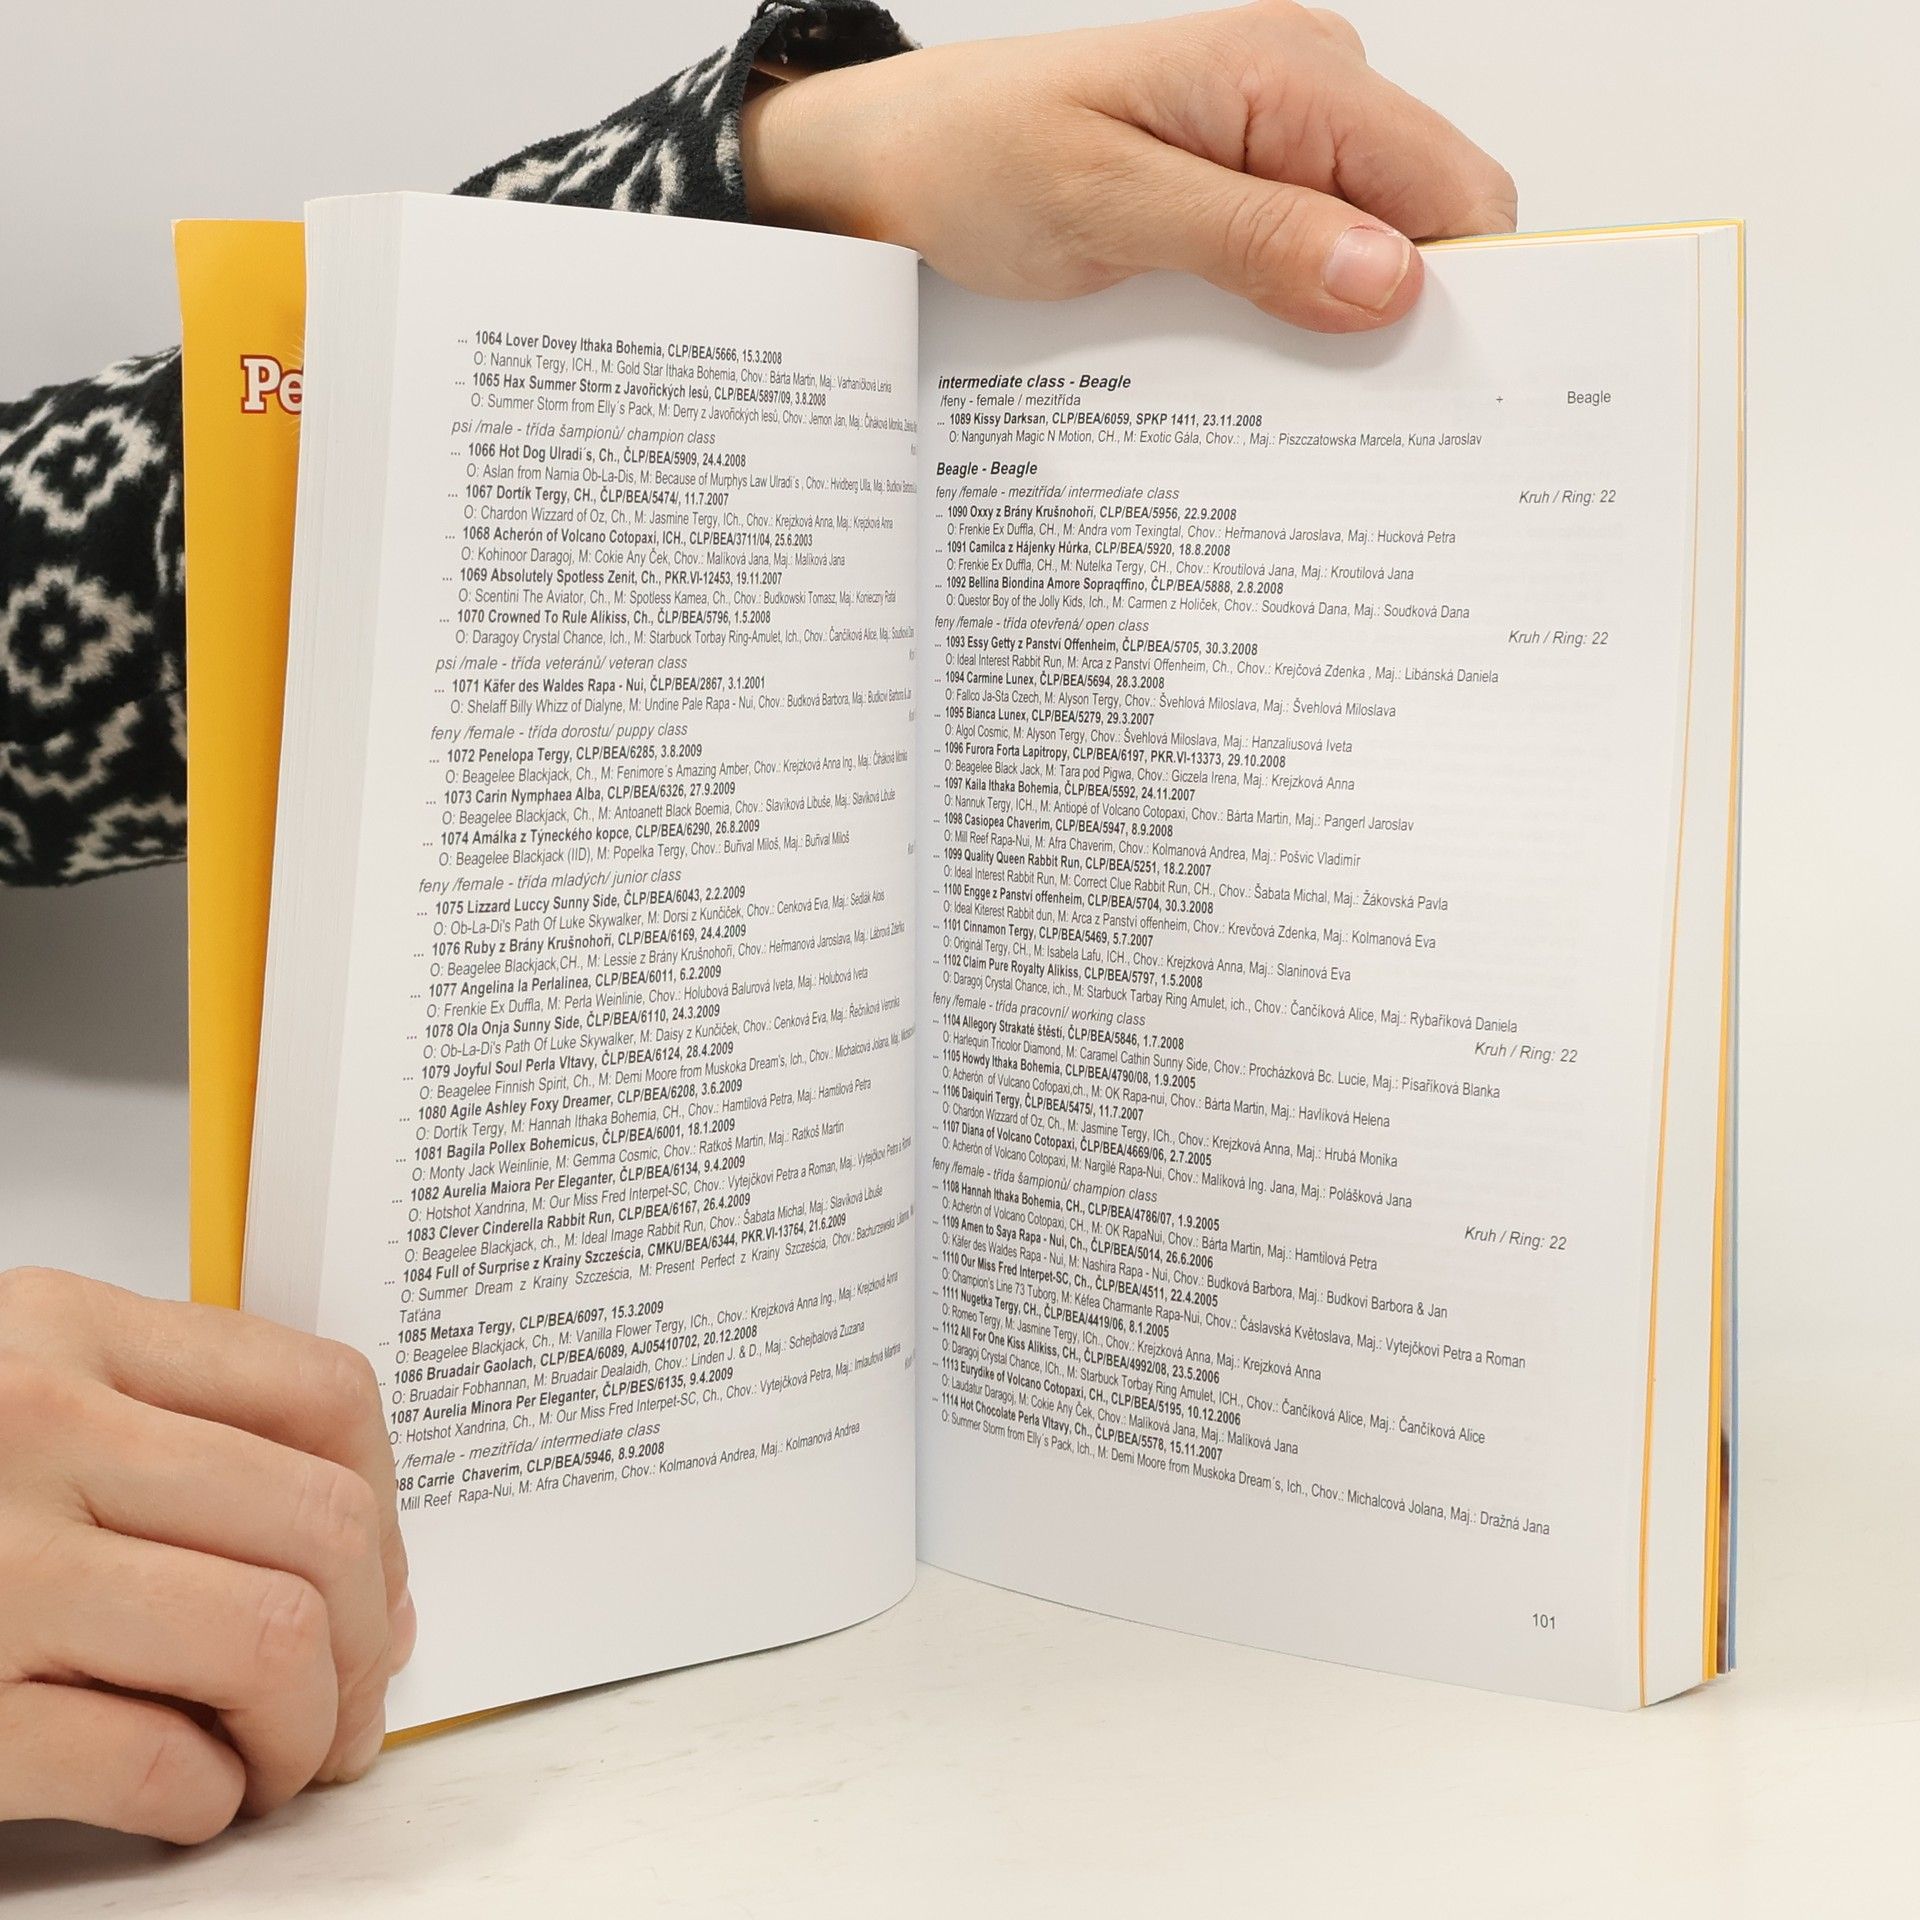 Pe
... 1064 Lover Dovey Ithaka Bohemia, CLP/BEA/5666, 15.3.2008
O: Nannuk Tergy, ICH., M: Gold Star Ithaka Bohemia, Chov.: Bárta Martin, Maj.: Varhaníčková Lenka
... 1065 Hax Summer Storm z Javořických lesů, CLP/BEA/5897/09, 3.8.2008
O: Summer Storm from Elly´s Pack, M: Derry z Javořických lesů, Chov.: Jemon Jan, Maj.: Čiháková Monika,
psi /male - třída šampionů/ champion class
... 1066 Hot Dog Ulradi´s, Ch., ČLP/BEA/5909, 24.4.2008
O: Aslan from Narnia Ob-La-Dis, M: Because of Murphys Law Ulradi´s , Chov.: Hvidberg Ulla, Maj.: Budkovi
... 1067 Dortík Tergy, CH., ČLP/BEA/5474/, 11.7.2007
O: Chardon Wizzard of Oz, Ch., M: Jasmine Tergy, ICh., Chov.: Krejzková Anna, Maj.: Krejzková Anna
... 1068 Acherón of Volcano Cotopaxi, ICH., CLP/BEA/3711/04, 25.6.2003
O: Kohinoor Daragoj, M: Cokie Any Ček, Chov.: Malíková Jana, Maj.: Malíková Jana
... 1069 Absolutely Spotless Zenit, Ch., PKR.VI-12453, 19.11.2007
O: Scentini The Aviator, Ch., M: Spotless Kamea, Ch., Chov.: Budkowski Tomasz, Maj.: Konieczny Rafal
... 1070 Crowned To Rule Alikiss, Ch., ČLP/BEA/5796, 1.5.2008
O: Daragoy Crystal Chance, Ich., M: Starbuck Torbay Ring-Amulet, Ich., Chov.: Čančíková Alice, Maj.:
psi /male - třída veteránů/ veteran class
... 1071 Käfer des Waldes Rapa - Nui, ČLP/BEA/2867, 3.1.2001
O: Shelaff Billy Whizz of Dialyne, M: Undine Pale Rapa - Nui, Chov.: Budková Barbora, Maj.: Budkovi Barbora
feny /female - třída dorostu/ puppy class
... 1072 Penelopa Tergy, CLP/BEA/6285, 3.8.2009
O: Beagelee Blackjack, Ch., M: Fenimore´s Amazing Amber, Chov.: Krejzková Anna Ing., Maj.: Čiháková Monika
... 1073 Carin Nymphaea Alba, CLP/BEA/6326, 27.9.2009
O: Beagelee Blackjack, Ch., M: Antoanett Black Boemia, Chov.: Slavíková Libuše, Maj.: Slavíková Libuše
... 1074 Amálka z Týneckého kopce, CLP/BEA/6290, 26.8.2009
O: Beagelee Blackjack (IID), M: Popelka Tergy, Chov.: Buřival Miloš, Maj.: Buřival Miloš
feny /female - třída mladých/ junior class
... 1075 Lizzard Luccy Sunny Side, ČLP/BEA/6043, 2.2.2009
O: Ob-La-Di's Path Of Luke Skywalker, M: Dorsi z Kunčiček, Chov.: Cenková Eva, Maj.: Sedlák Alois
... 1076 Ruby z Brány Krušnohoří, CLP/BEA/6169, 24.4.2009
O: Beagelee Blackjack,CH., M: Lessie z Brány Krušnohoří, Chov.: Heřmanová Jaroslava, Maj.: Lábrová Zdeňka
... 1077 Angelina la Perlalinea, CLP/BEA/6011, 6.2.2009
O: Frenkie Ex Duffla, M: Perla Weinlinie, Chov.: Holubová Balurová Iveta, Maj.: Holubová Iveta
... 1078 Ola Onja Sunny Side, ČLP/BEA/6110, 24.3.2009
O: Ob-La-Di's Path Of Luke Skywalker, M: Daisy z Kunčiček, Chov.: Cenková Eva, Maj.: Řečníková Veronika
... 1079 Joyful Soul Perla Vltavy, ČLP/BEA/6124, 28.4.2009
O: Beagelee Finnish Spirit, Ch., M: Demi Moore from Muskoka Dream's, Ich., Chov.: Michalcová Jolana, Maj.:
... 1080 Agile Ashley Foxy Dreamer, CLP/BEA/6208, 3.6.2009
O: Dortík Tergy, M: Hannah Ithaka Bohemia, CH., Chov.: Hamtilová Petra, Maj.: Hamtilová Petra
... 1081 Bagila Pollex Bohemicus, ČLP/BEA/6001, 18.1.2009
O: Monty Jack Weinlinie, M: Gemma Cosmic, Chov.: Ratkoš Martin, Maj.: Ratkoš Martin
... 1082 Aurelia Maiora Per Eleganter, ČLP/BEA/6134, 9.4.2009
O: Hotshot Xandrina, M: Our Miss Fred Interpet-SC, Chov.: Vytejčkovi Petra a Roman, Maj.: Vytejčkovi Petra a Roman
... 1083 Clever Cinderella Rabbit Run, CLP/BEA/6167, 26.4.2009
O: Beagelee Blackjack, ch., M: Ideal Image Rabbit Run, Chov.: Šabata Michal, Maj.: Slavíková Libuše
... 1084 Full of Surprise z Krainy Szcześcia, CMKU/BEA/6344, PKR.VI-13764, 21.6.2009
O: Summer Dream z Krainy Szcześcia, M: Present Perfect z Krainy Szcześcia, Chov.: Bachurzewska
Taťána
... 1085 Metaxa Tergy, CLP/BEA/6097, 15.3.2009
O: Beagelee Blackjack, Ch., M: Vanilla Flower Tergy, ICh., Chov.: Krejzková Anna Ing., Maj.: Krejzková Anna
.. 1086 Bruadair Gaolach, CLP/BEA/6089, AJ05410702, 20.12.2008
O: Bruadair Fobhannan, M: Bruadair Dealaidh, Chov.: Linden J. & D., Maj.: Schejbalová Zuzana
1087 Aurelia Minora Per Eleganter, ČLP/BES/6135, 9.4.2009
O: Hotshot Xandrina, Ch., M: Our Miss Fred Interpet-SC, Ch., Chov.: Vytejčková Petra, Maj.: Imlaufová Martina
/female - mezitřída/ intermediate class
088 Carrie Chaverim, CLP/BEA/5946, 8.9.2008
Mill Reef Rapa-Nui, M: Afra Chaverim, Chov.: Kolmanová Andrea, Maj.: Kolmanová Andrea
intermediate class - Beagle
/feny - female / mezitřída + Beagle
... 1089 Kissy Darksan, CLP/BEA/6059, SPKP 1411, 23.11.2008
O: Nangunyah Magic N Motion, CH., M: Exotic Gála, Chov.: , Maj.: Piszczatowska Marcela, Kuna Jaroslav
Beagle - Beagle
feny /female - mezitřída/ intermediate class Kruh / Ring: 22
... 1090 Oxxy z Brány Krušnohoří, CLP/BEA/5956, 22.9.2008
O: Frenkie Ex Duffla, CH., M: Andra vom Texingtal, Chov.: Heřmanová Jaroslava, Maj.: Hucková Petra
... 1091 Camilca z Hájenky Hůrka, CLP/BEA/5920, 18.8.2008
O: Frenkie Ex Duffla, CH., M: Nutelka Tergy, CH., Chov.: Kroutilová Jana, Maj.: Kroutilová Jana
... 1092 Bellina Biondina Amore Sopraqffino, ČLP/BEA/5888, 2.8.2008
O: Questor Boy of the Jolly Kids, Ich., M: Carmen z Holiček, Chov.: Soudková Dana, Maj.: Soudková Dana
feny /female - třída otevřená/ open class Kruh / Ring: 22
... 1093 Essy Getty z Panství Offenheim, ČLP/BEA/5705, 30.3.2008
O: Ideal Interest Rabbit Run, M: Arca z Panství Offenheim, Ch., Chov.: Krejčová Zdenka , Maj.: Libánská Daniela
... 1094 Carmine Lunex, ČLP/BEA/5694, 28.3.2008
O: Fallco Ja-Sta Czech, M: Alyson Tergy, Chov.: Švehlová Miloslava, Maj.: Švehlová Miloslava
... 1095 Bianca Lunex, CLP/BEA/5279, 29.3.2007
O: Algol Cosmic, M: Alyson Tergy, Chov.: Švehlová Miloslava, Maj.: Hanzaliusová Iveta
... 1096 Furora Forta Lapitropy, CLP/BEA/6197, PKR.VI-13373, 29.10.2008
O: Beagelee Black Jack, M: Tara pod Pigwa, Chov.: Giczela Irena, Maj.: Krejzková Anna
... 1097 Kaila Ithaka Bohemia, ČLP/BEA/5592, 24.11.2007
O: Nannuk Tergy, ICH., M: Antiopé of Volcano Cotopaxi, Chov.: Bárta Martin, Maj.: Pangerl Jaroslav
... 1098 Casiopea Chaverim, CLP/BEA/5947, 8.9.2008
O: Mill Reef Rapa-Nui, M: Afra Chaverim, Chov.: Kolmanová Andrea, Maj.: Pošvic Vladimír
... 1099 Quality Queen Rabbit Run, CLP/BEA/5251, 18.2.2007
O: Ideal Interest Rabbit Run, M: Correct Clue Rabbit Run, CH., Chov.: Šabata Michal, Maj.: Žákovská Pavla
... 1100 Engge z Panství offenheim, CLP/BEA/5704, 30.3.2008
O: Ideal Kiterest Rabbit dun, M: Arca z Panství offenheim, Chov.: Krevčová Zdenka, Maj.: Kolmanová Eva
... 1101 Cinnamon Tergy, CLP/BEA/5469, 5.7.2007
O: Originál Tergy, CH., M: Isabela Lafu, ICH., Chov.: Krejzková Anna, Maj.: Slaninová Eva
... 1102 Claim Pure Royalty Alikiss, CLP/BEA/5797, 1.5.2008
O: Daragoj Crystal Chance, ich., M: Starbuck Tarbay Ring Amulet, ich., Chov.: Čančíková Alice, Maj.: Rybaříková Daniela
feny /female - třída pracovní/ working class Kruh / Ring: 22
... 1104 Allegory Strakaté štěstí, ČLP/BEA/5846, 1.7.2008
O: Harlequin Tricolor Diamond, M: Caramel Cathin Sunny Side, Chov.: Procházková Bc. Lucie, Maj.: Písaříková Blanka
... 1105 Howdy Ithaka Bohemia, CLP/BEA/4790/08, 1.9.2005
O: Acherón of Vulcano Cofopaxi,ch., M: OK Rapa-nui, Chov.: Bárta Martin, Maj.: Havlíková Helena
... 1106 Daiquiri Tergy, ČLP/BEA/5475/, 11.7.2007
O: Chardon Wizzard of Oz, Ch., M: Jasmine Tergy, ICh., Chov.: Krejzková Anna, Maj.: Hrubá Monika
... 1107 Diana of Volcano Cotopaxi, ČLP/BEA/4669/06, 2.7.2005
O: Acherón of Volcano Cotopaxi, M: Nargilé Rapa-Nui, Chov.: Malíková Ing. Jana, Maj.: Polášková Jana
feny /female - třída šampionů/ champion class Kruh / Ring: 22
... 1108 Hannah Ithaka Bohemia, CH., CLP/BEA/4786/07, 1.9.2005
O: Acherón of Volcano Cotopaxi, CH., M: OK RapaNui, Chov.: Bárta Martin, Maj.: Hamtilová Petra
... 1109 Amen to Saya Rapa - Nui, Ch., ČLP/BEA/5014, 26.6.2006
O: Käfer des Waldes Rapa - Nui, M: Nashira Rapa - Nui, Chov.: Budková Barbora, Maj.: Budkovi Barbora & Jan
... 1110 Our Miss Fred Interpet-SC, Ch., ČLP/BEA/4511, 22.4.2005
O: Champion's Line 73 Tuborg, M: Kéfea Charmante Rapa-Nui, Chov.: Čáslavská Květoslava, Maj.: Vytejčkovi Petra a Roman
... 1111 Nugetka Tergy, CH., ČLP/BEA/4419/06, 8.1.2005
O: Romeo Tergy, M: Jasmine Tergy, ICh., Chov.: Krejzková Anna, Maj.: Krejzková Anna
... 1112 All For One Kiss Alikiss, CH., ČLP/BEA/4992/08, 23.5.2006
O: Daragoj Crystal Chance, ICh., M: Starbuck Torbay Ring Amulet, ICH., Chov.: Čančíková Alice, Maj.: Čančíková Alice
... 1113 Eurydike of Volcano Cotopaxi, CH., CLP/BEA/5195, 10.12.2006
O: Laudatur Daragoj, M: Cokie Any Ček, Chov.: Malíková Jana, Maj.: Malíková Jana
... 1114 Hot Chocolate Perla Vltavy, Ch., ČLP/BEA/5578, 15.11.2007
O: Summer Storm from Elly´s Pack, Ich., M: Demi Moore from Muskoka Dream´s, Ich., Chov.: Michalcová Jolana, Maj.: Dražná Jana
101